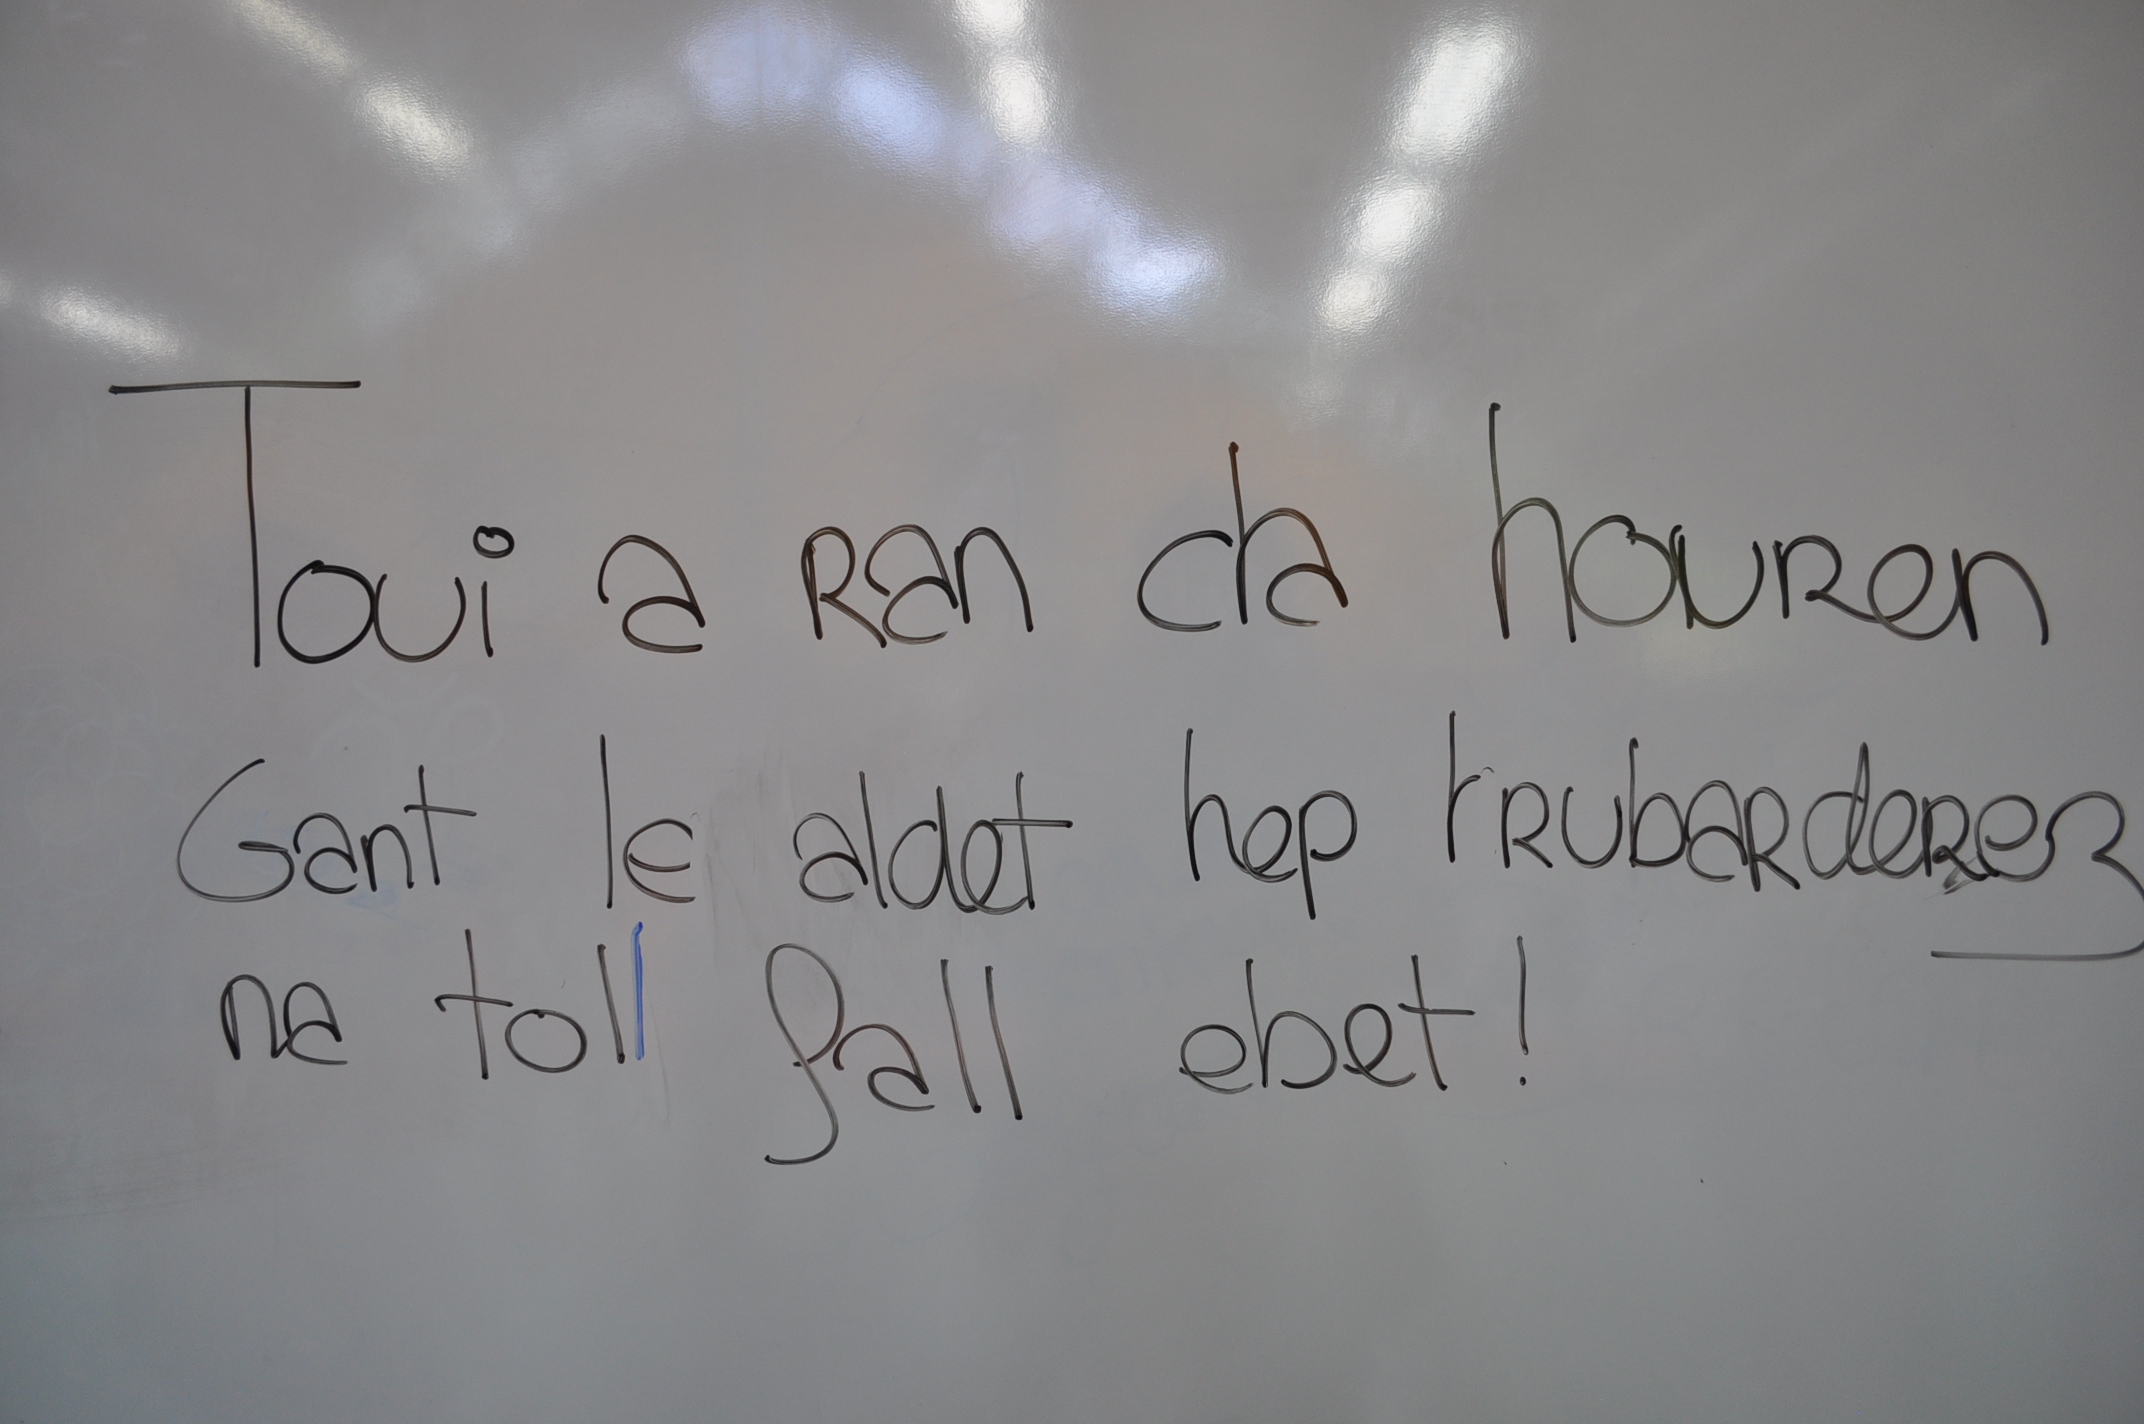 Toui a ran da houren
Gant lealdet hep trubarderez
na toll fall ebet!